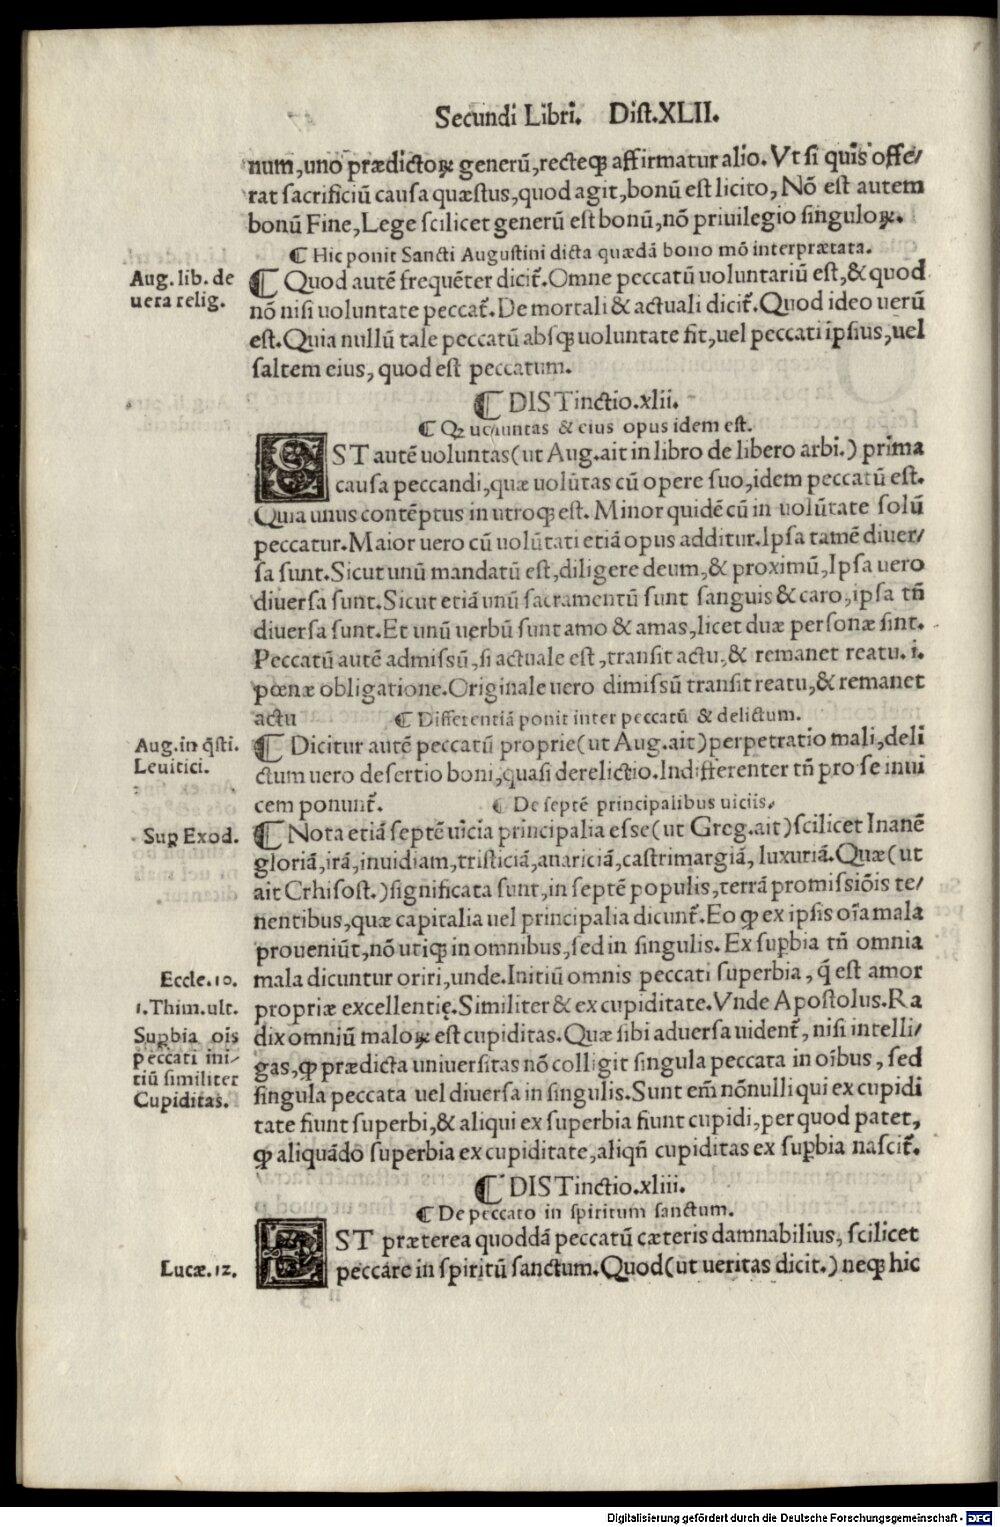 Secundi Libri. Dist.XLII.
num,uno prædictoꝝ generū,recteqꝫ affirmatur alio. Vt si quis offe/
rat sacrificiū causa quæstus,quod agit,bonū est licito, Nō est autem
bonū Fine,Lege scilicet generū est bonū,nō priuilegio singuloꝝ.
¶ Hic ponit Sancti Augustini dicta quædā bono mō interprætata.
Aug. lib. de
uera relig.
¶ Quod autē frequēter dicit̃. Omne peccatū uoluntariū est,& quod
nō nisi uoluntate peccat̃. De mortali & actuali dicit̃. Quod ideo uerū
est. Quia nullū tale peccatū absqꝫ uoluntate fit,uel peccati ipsius,uel
saltem eius, quod est peccatum.
¶ DISTinctio.xlii.
¶ Qꝫ uoluntas & eius opus idem est.
EST autē uoluntas(ut Aug.ait in libro de libero arbi.) prima
causa peccandi,quæ uolūtas cū opere suo,idem peccatū est.
Quia unus contēptus in utroqꝫ est. Minor quidē cū in uolūtate solū
peccatur. Maior uero cū uolūtati etiā opus additur. Ipsa tamē diuer/
sa sunt. Sicut unū mandatū est,diligere deum,& proximū, Ipsa uero
diuersa sunt. Sicut etiā unū sacramentū sunt sanguis & caro, ipsa tñ
diuersa sunt. Et unū uerbū sunt amo & amas, licet duæ personæ sint.
Peccatū autē admissū,si actuale est,transit actu,& remanet reatu.i.
pœnæ obligatione. Originale uero dimissū transit reatu,& remanet
actu ¶ Differentiā ponit inter peccatū & delictum.
Aug.in q̄sti.
Leuitici.
¶ Dicitur autē peccatū proprie(ut Aug.ait)perpetratio mali,deli
ctum uero desertio boni,quasi derelictio. Indifferenter tñ pro se inui
cem ponunt̃. ¶ De septē principalibus uiciis.
Suꝑ Exod.
¶ Nota etiā septē uicia principalia esse(ut Greg.ait)scilicet Inanē
gloriā,irā,inuidiam,tristiciā,auariciā,castrimargiā, luxuriā. Quæ(ut
ait Crhisost.)significata sunt,in septē populis,terrā promissiōis te/
nentibus,quæ capitalia uel principalia dicunt̃. Eo ꝙ ex ipsis oīa mala
proueniūt,nō utiqꝫ in omnibus,sed in singulis. Ex suꝑbia tñ omnia
Eccle.10.
mala dicuntur oriri,unde.Initiū omnis peccati superbia, q̄ est amor
1.Thim.ult.
propriæ excellentię. Similiter & ex cupiditate. Vnde Apostolus. Ra
Suꝑbia oīs
peccati ini/
tiū similiter
Cupiditas.
dix omniū maloꝝ est cupiditas. Quæ sibi aduersa uident̃, nisi intelli/
gas,ꝙ prædicta uniuersitas nō colligit singula peccata in oībus, sed
singula peccata uel diuersa in singulis. Sunt em̄ nōnulli qui ex cupidi
tate fiunt superbi,& aliqui ex superbia fiunt cupidi,per quod patet,
ꝙ aliquādo superbia ex cupiditate,aliqñ cupiditas ex suꝑbia nascit̃.
¶ DISTinctio.xliii.
¶ De peccato in spiritum sanctum.
EST præterea quoddā peccatū cæteris damnabilius, scilicet
Lucæ.12.
peccare in spiritū sanctum. Quod(ut ueritas dicit.) neqꝫ hic
Digitalisierung gefördert durch die Deutsche Forschungsgemeinschaft - DFG